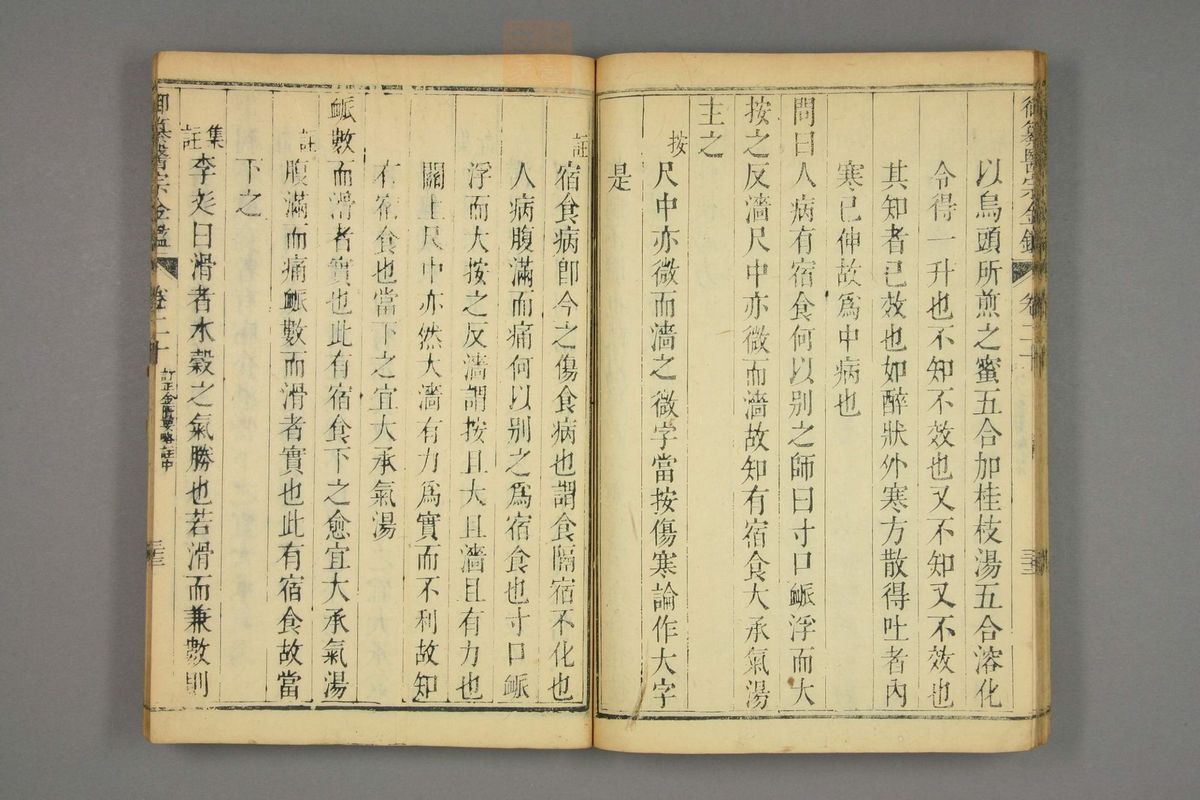 御纂醫宗金鑑 卷二十
以烏頭所煎之蜜五合加桂枝湯五合溶化
令得一升也不知不效也又不知又不效也
其知者已效也如醉狀外寒方散得吐者內
寒已伸故爲中病也
問曰人病有宿食何以别之師曰寸口脈浮而大
按之反濇尺中亦微而濇故知有宿食大承氣湯
主之
按尺中亦微而濇之微字當按傷寒論作大字
是
註宿食病卽今之傷食病也謂食隔宿不化也
人病腹滿而痛何以别之爲宿食也寸口脈
浮而大按之反濇謂按且大且濇且有力也
關上尺中亦然大濇有力爲實而不利故知
有宿食也當下之宜大承氣湯
脈數而滑者實也此有宿食下之愈宜大承氣湯
註腹滿而痛脈數而滑者實也此有宿食故當
下之
集註李彣曰滑者水穀之氣勝也若滑而兼數則
御纂醫宗金鑑 卷二十 訂正金匱要略註中